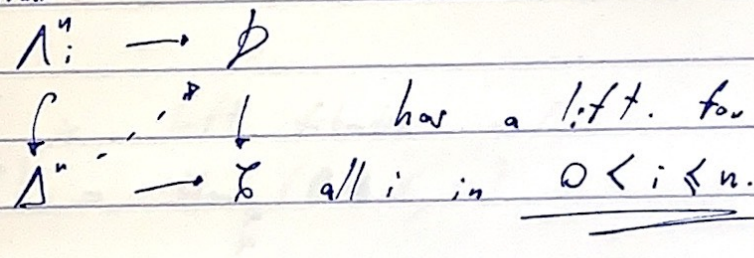 Λⁿᵢ → D
has a lift. for
Δⁿ → C all i in 0 < i ≤ n.